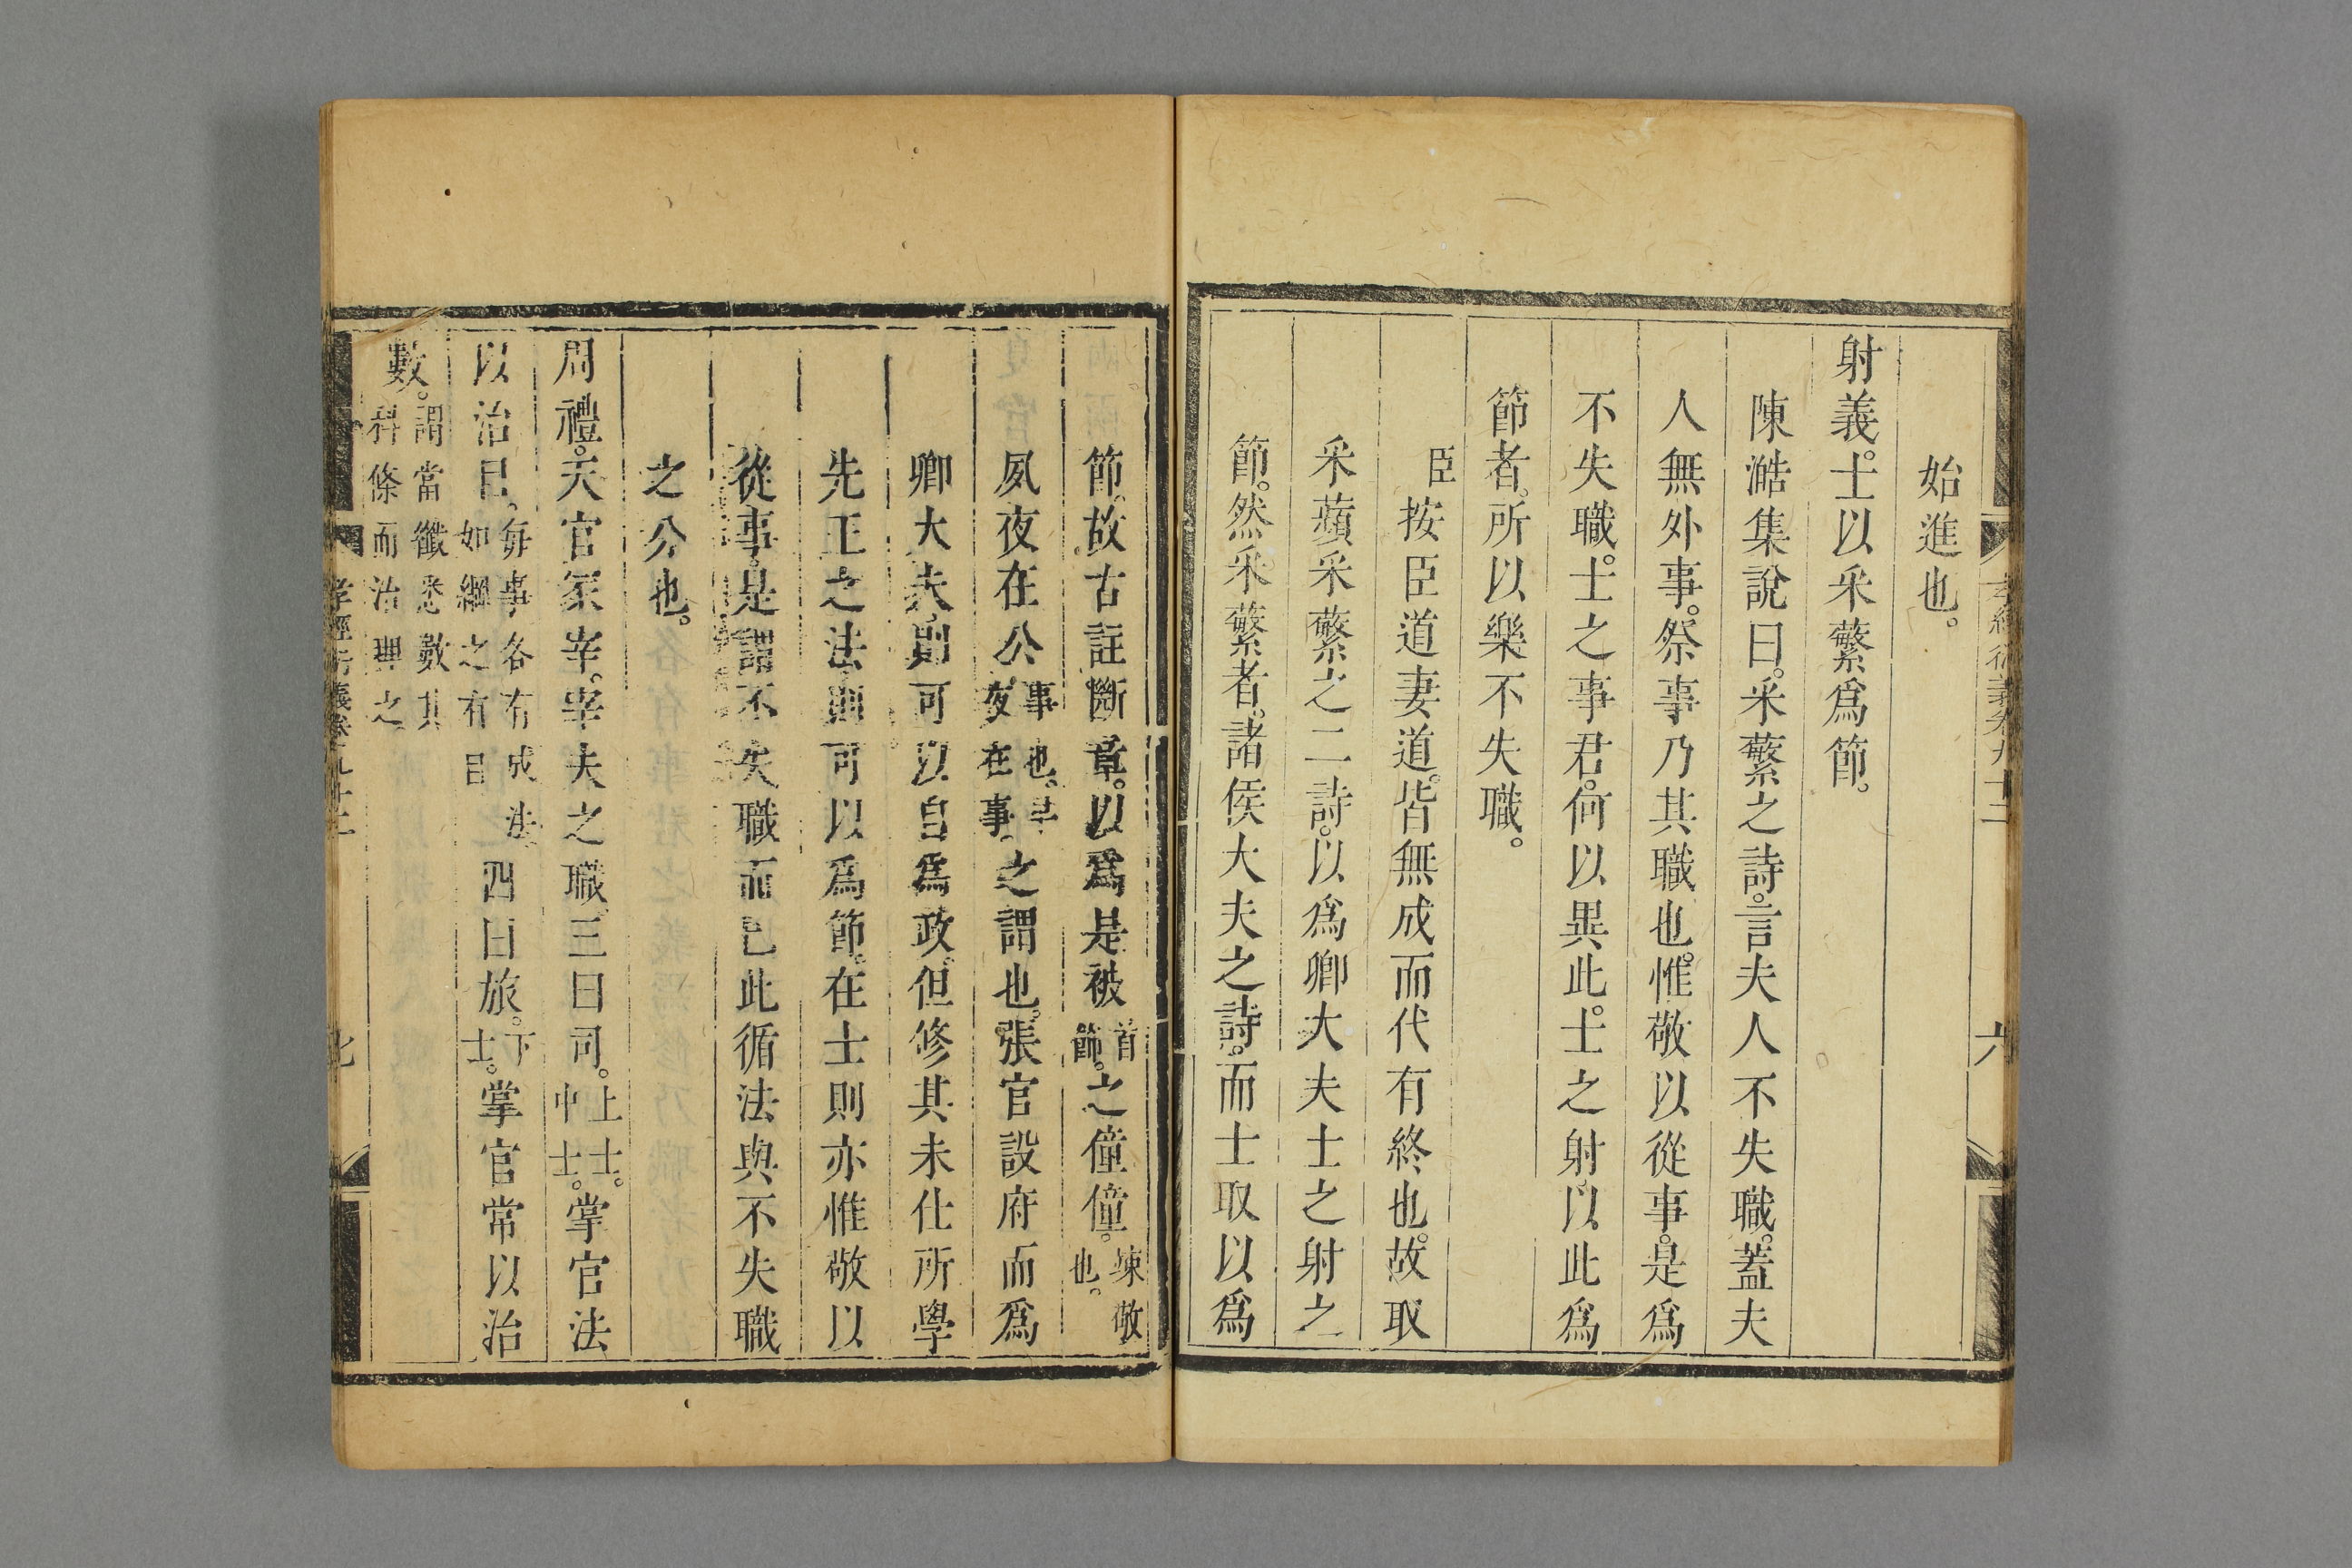 始進也。
射義。士以采蘩爲節。
陳澔集說曰。采蘩之詩。言夫人不失職。蓋夫
人無外事。祭事乃其職也。惟敬以從事。是爲
不失職。士之事君。何以異此。士之射。以此爲
節者。所以樂不失職。
臣按臣道妻道。皆無成而代有終也。故取
采蘋采蘩之二詩。以爲卿大夫士之射之
節。然采蘩者。諸侯大夫之詩。而士取以爲
節。故古註斷章。以爲是被首節。之僮僮。竦敬也。
夙夜在公事也。早夜在事之謂也。張官設府而爲
卿大夫則可以自爲政。但修其未仕所學
先王之法則可以爲節。在士則亦惟敬以
從事。是謂不失職而已此循法與不失職
之分也。
周禮。天官冢宰。宰夫之職。三曰司。上士。中士。掌官法
以治目。每事各有成法。如綱之有目四曰旅。下士。掌官常以治
數。謂當徵悉數其科條而治理之
孝經衍義卷九十二
六
孝經衍義卷九十二